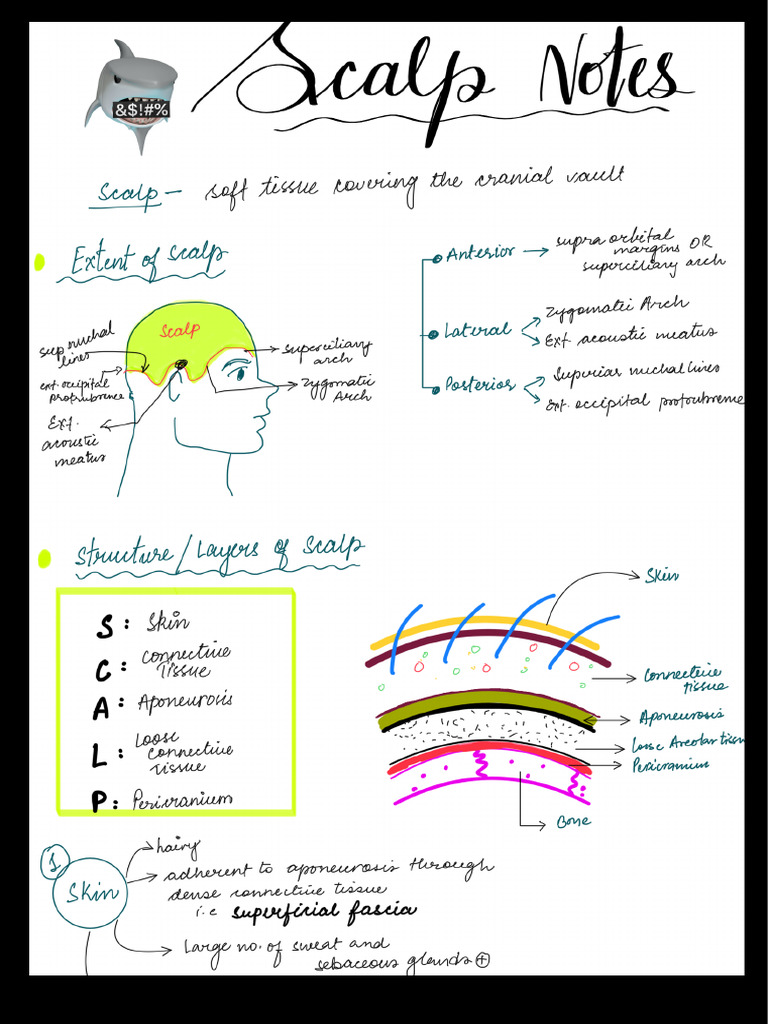 &$!#%
Scalp Notes
Scalp — soft tissue covering the cranial vault
Extent of scalp
Anterior → supra orbital
margins OR
superciliary arch
Lateral
Zygomatic Arch
Ext. acoustic meatus
Posterior
Superior nuchal lines
Ext. occipital protoubrence
scalp
sup nuchal
lines
ext. occipital
protoubrence
Ext.
acoustic
meatus
superciliary
arch
Zygomatic
Arch
Structure/Layers of Scalp
S : Skin
C : Connective
Tissue
A : Aponeurosis
L : Loose
connective
Tissue
P : Pericranium
Skin
Connective
tissue
Aponeurosis
Loose Areolar tissu
Pericranium
Bone
1
Skin
hairy
adherent to aponeurosis through
dense connective tissue
i.e superficial fascia
Large no. of sweat and
sebaceous glands ⊕